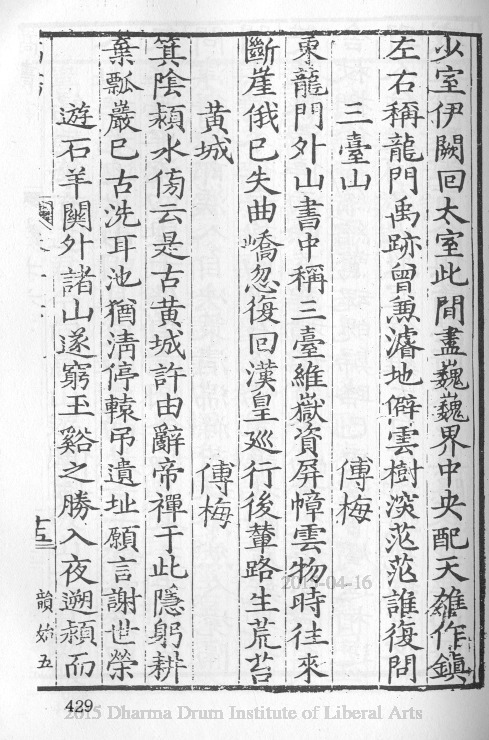 少室伊闕回太室此間盡巍巍界中央配天雄作鎮
左右稱龍門禹跡曾兼濬地僻雲樹深茫茫誰復問
三臺山 傅梅
東龍門外山書中稱三臺維嶽資屏幛雲物時往來
斷崖俄已失曲嶠忽復回漢皇巡行後輦路生荒苔
黃城 傅梅
箕陰潁水傍云是古黃城許由辭帝禪于此隱躬耕
棄瓢巖已古洗耳池猶清停轅吊遺址願言謝世榮
遊石羊關外諸山遂窮玉谿之勝入夜遡潁而
十五
韻始五
429
2015-04-16
2015 Dharma Drum Institute of Liberal Arts